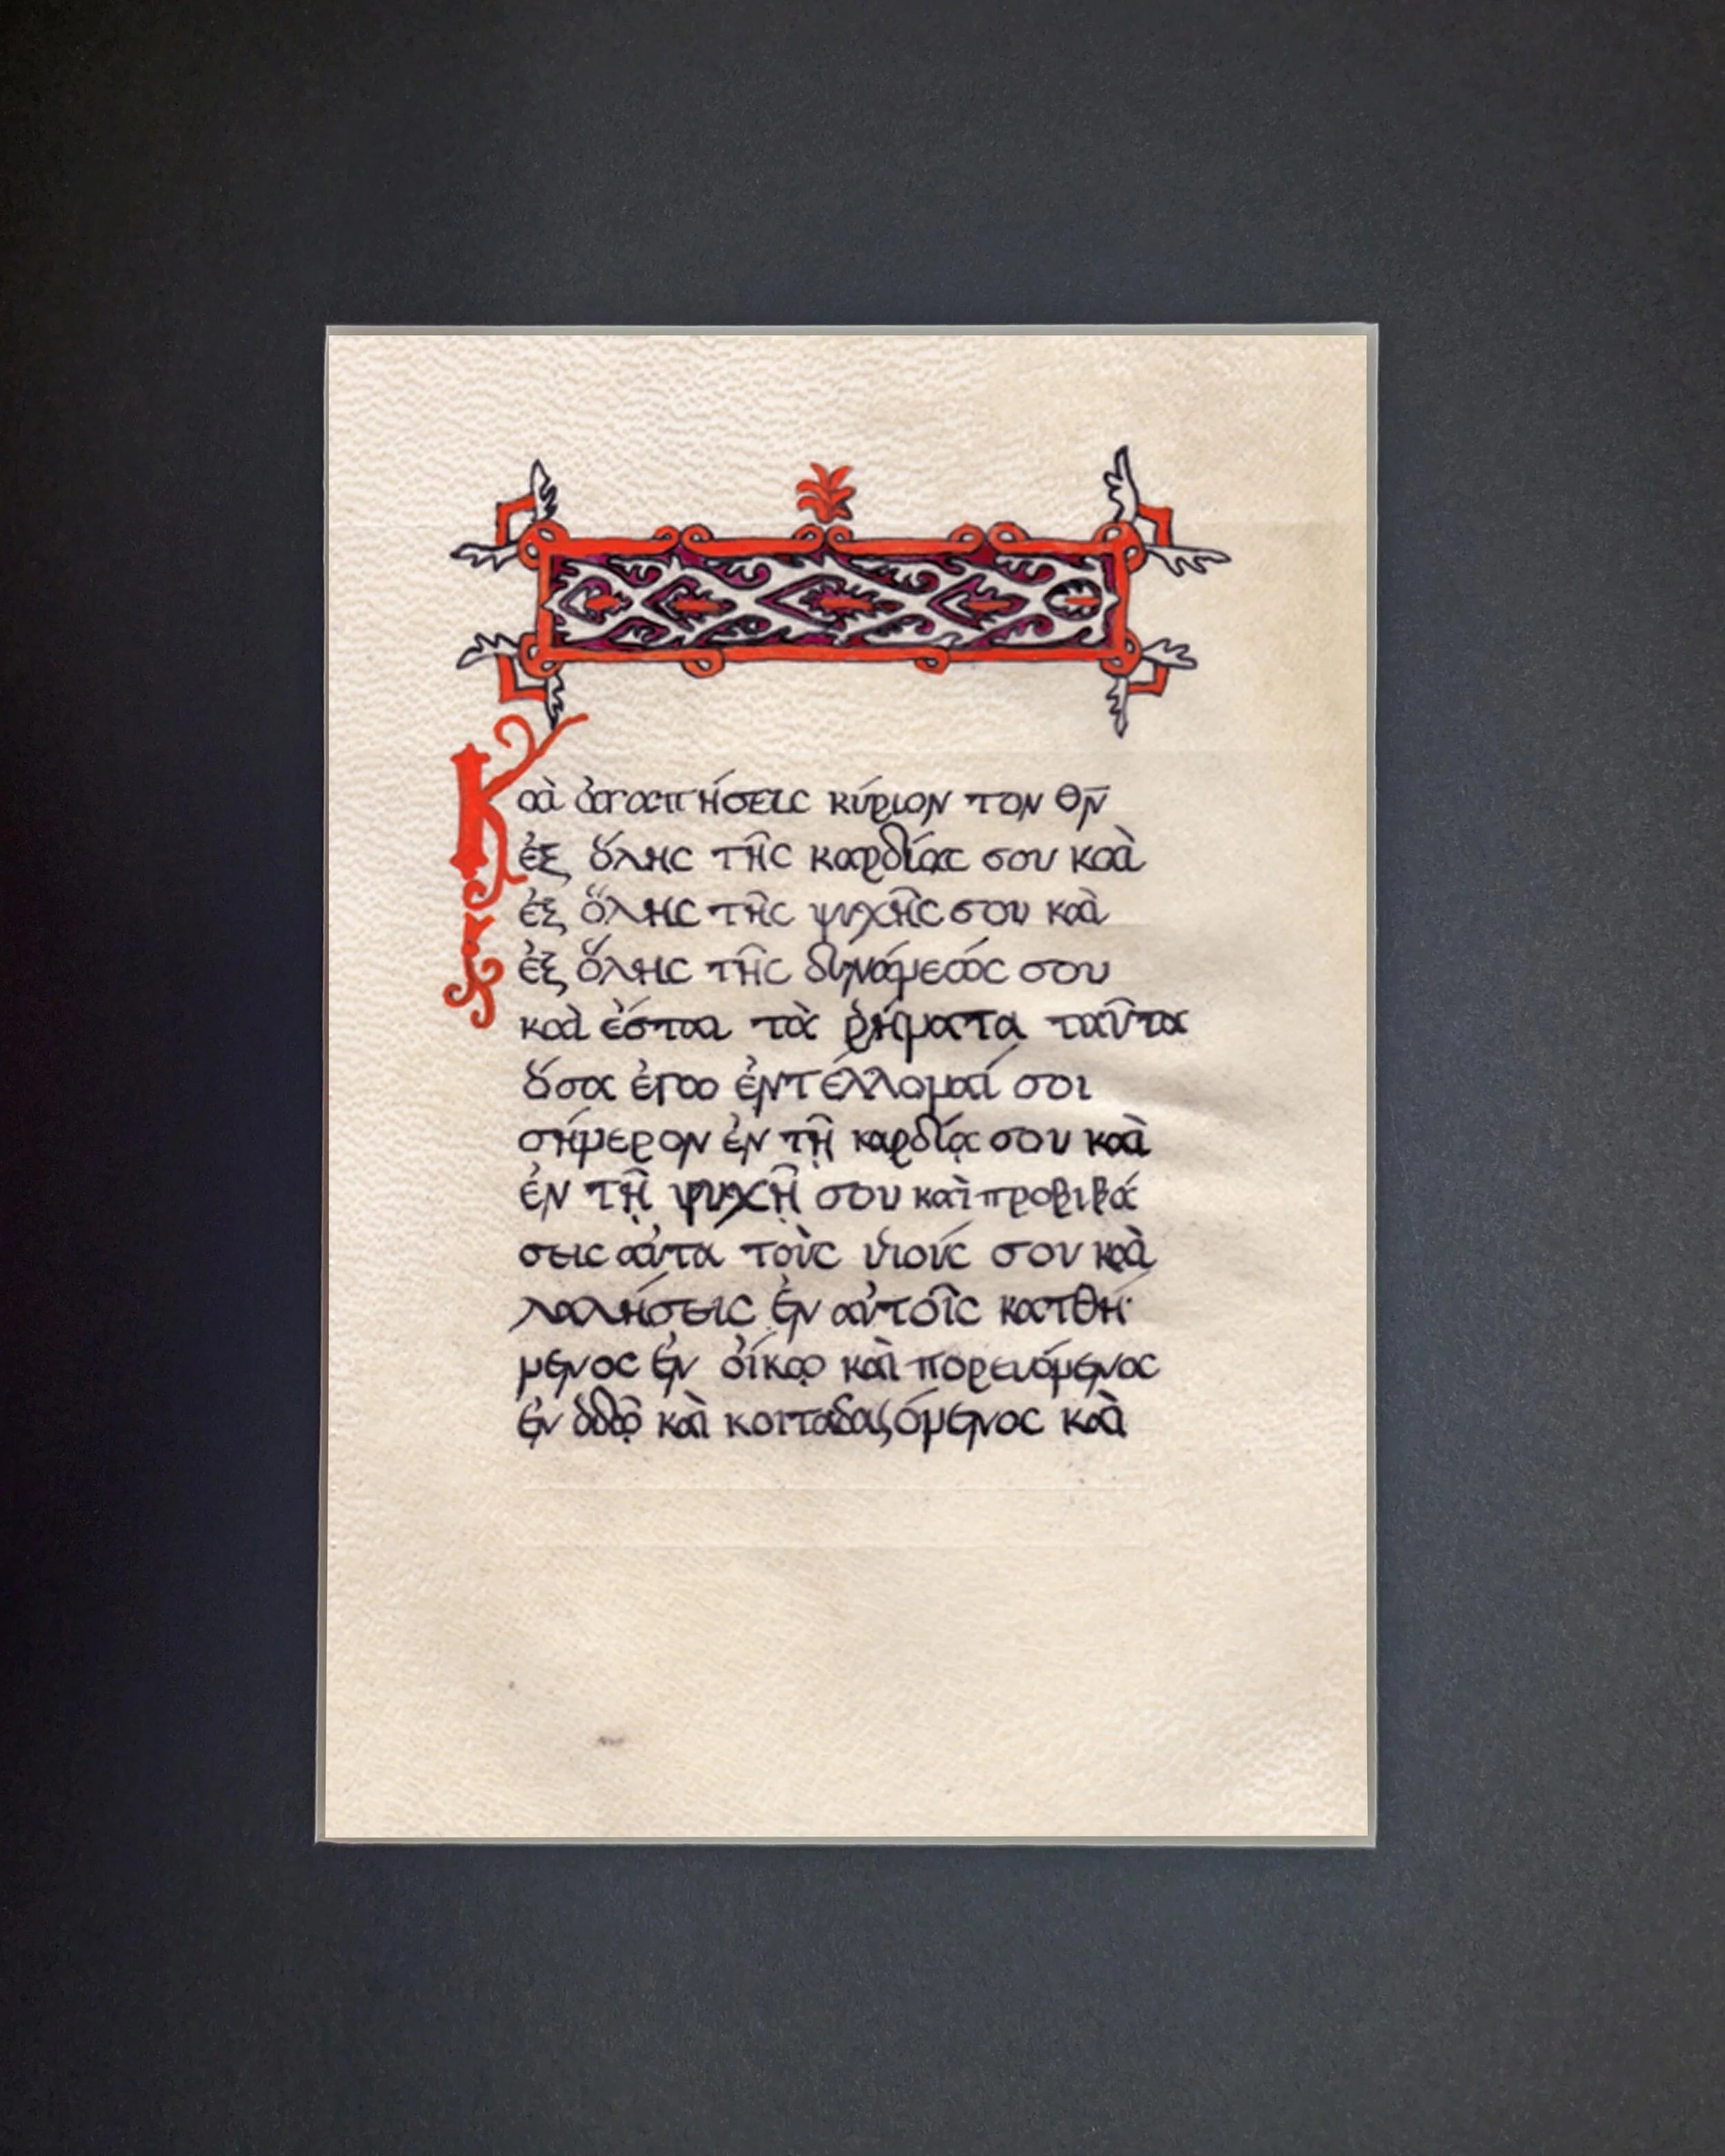 Καὶ ἀγαπήσεις κύριον τον θν̄
ἐξ ὅλης τῆς καρδίας σου καὶ
ἐξ ὅλης τῆς ψυχῆς σου καὶ
ἐξ ὅλης τῆς δυνάμεώς σου
καὶ ἔσται τὰ ῥήματα ταῦτα
ὅσα ἐγω ἐντέλλομαί σοι
σήμερον ἐν τῇ καρδίᾳ σου καὶ
ἐν τῇ ψυχῇ σου καὶ προβιβά
σεις αὐτα τοὺς υἱούς σου καὶ
λαλήσεις ἐν αὐτοῖς κατθή
μενος ἐν οἴκῳ καὶ πορευόμενος
ἐν ὁδῷ καὶ καὶ